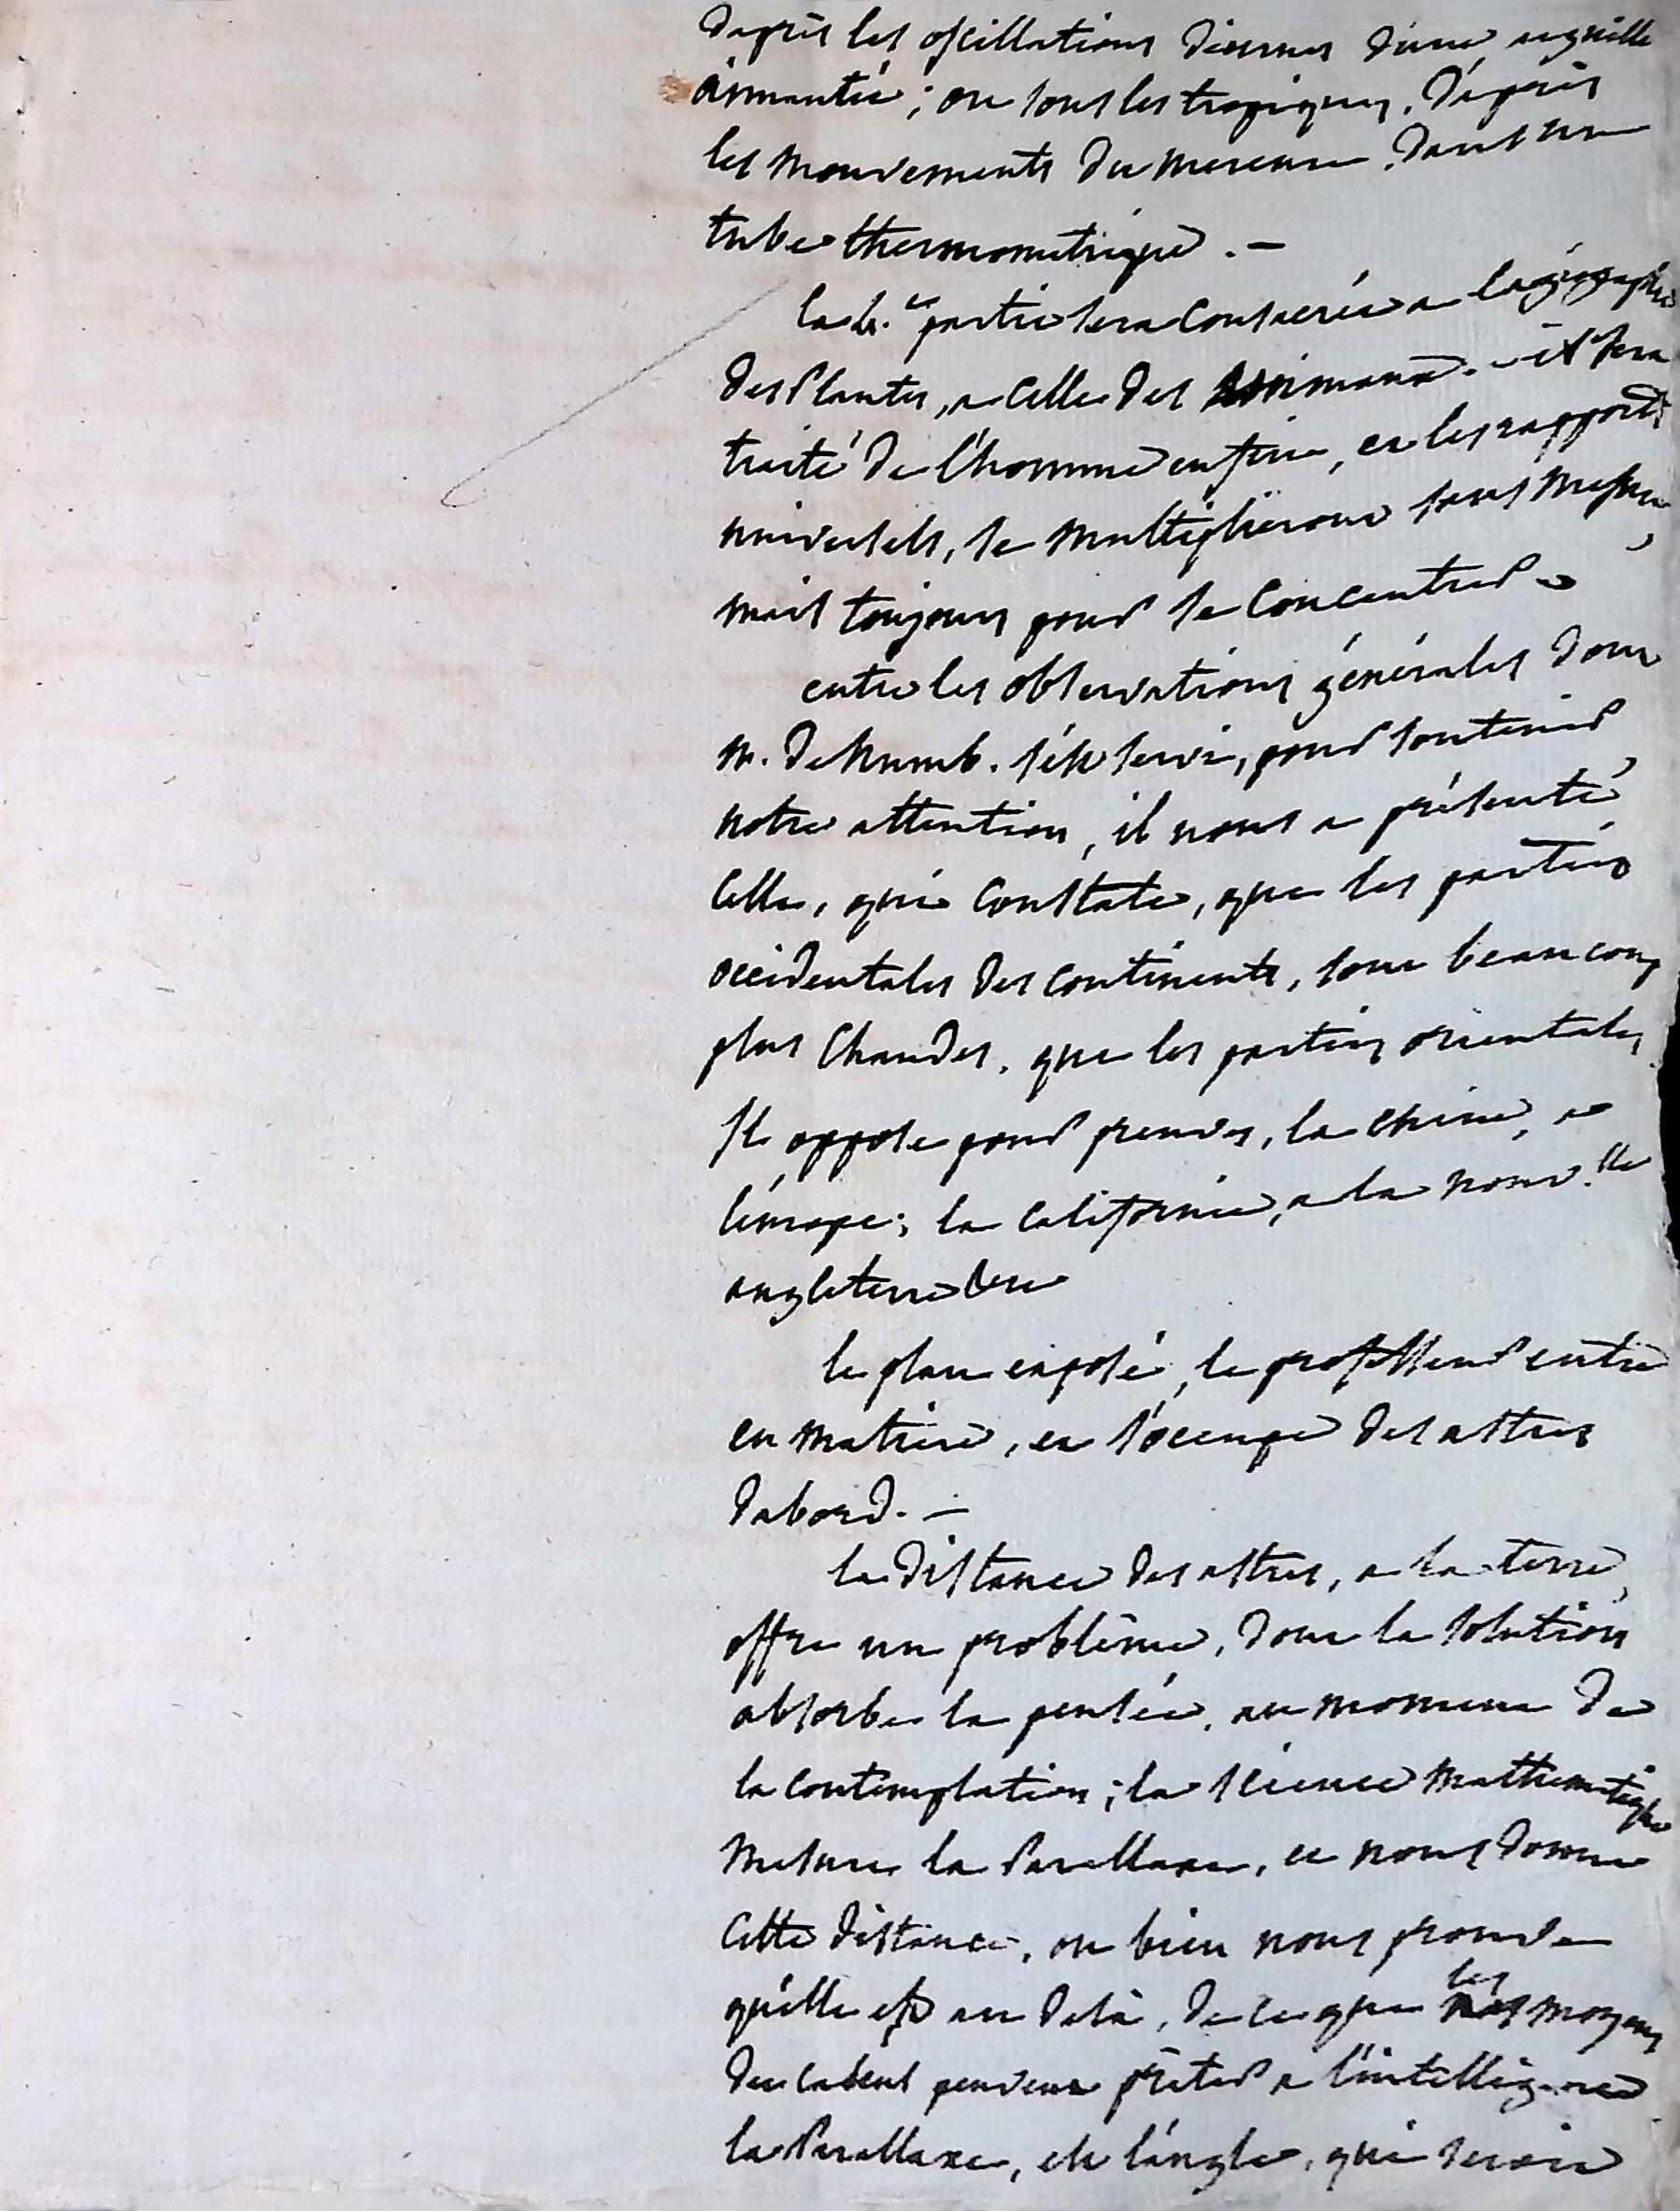 d'après les oscillations diurnes d'une aiguille
aimantée ; ou sous les tropiques, d'après
les mouvements du mercure, dans un
tube thermometrique. —
la partie sera consacrée a la géographie
des Plantes, a celle des animaux. – il sera
traité de l'homme enfin, et les rapports
universels, se multiplieront sans mesure,
mais toujours pour se concentrer
entre les observations générales dont
M. de humb. s'est servi, pour soutenir
notre attention, il nous a présenté
celle, qui constate, que les parties
occidentales des continents, sont beaucoup
plus chaudes, que les parties orientales
Il oppose pour preuves, la chine, a
l'europe ; la californie, a la nouv.lle
angleterre &c
le plan exposé, le professeur entre
en matiere, et s'occupe des astres
d'abord. —
la distance des astres, a la terre,
offre un problême, dont la solution
absorbe la pensée, au moment de
la contemplation ; la science mathematique
mesure la Parallaxe, et nous donne
cette distance, ou bien nous prouve
qu'elle est au delà, de ce que les moyens
du calcul peuvent prêter a l'intelligence
la Parallaxe, est l'angle, qui seroit